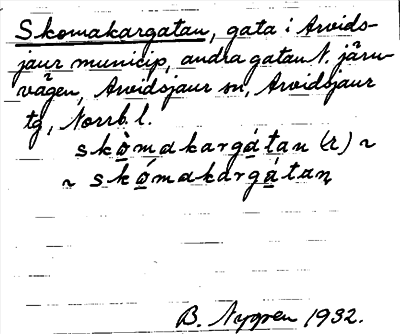 Skomakargatan, gata i Arvids-
jaur municip, andra gatan N. järn-
vägen, Arvidsjaur sn, Arvidsjaur
tg, Norrb. l.
skòmakargátan (r) ~
~ skómakargátan
B. Nygren 1932.